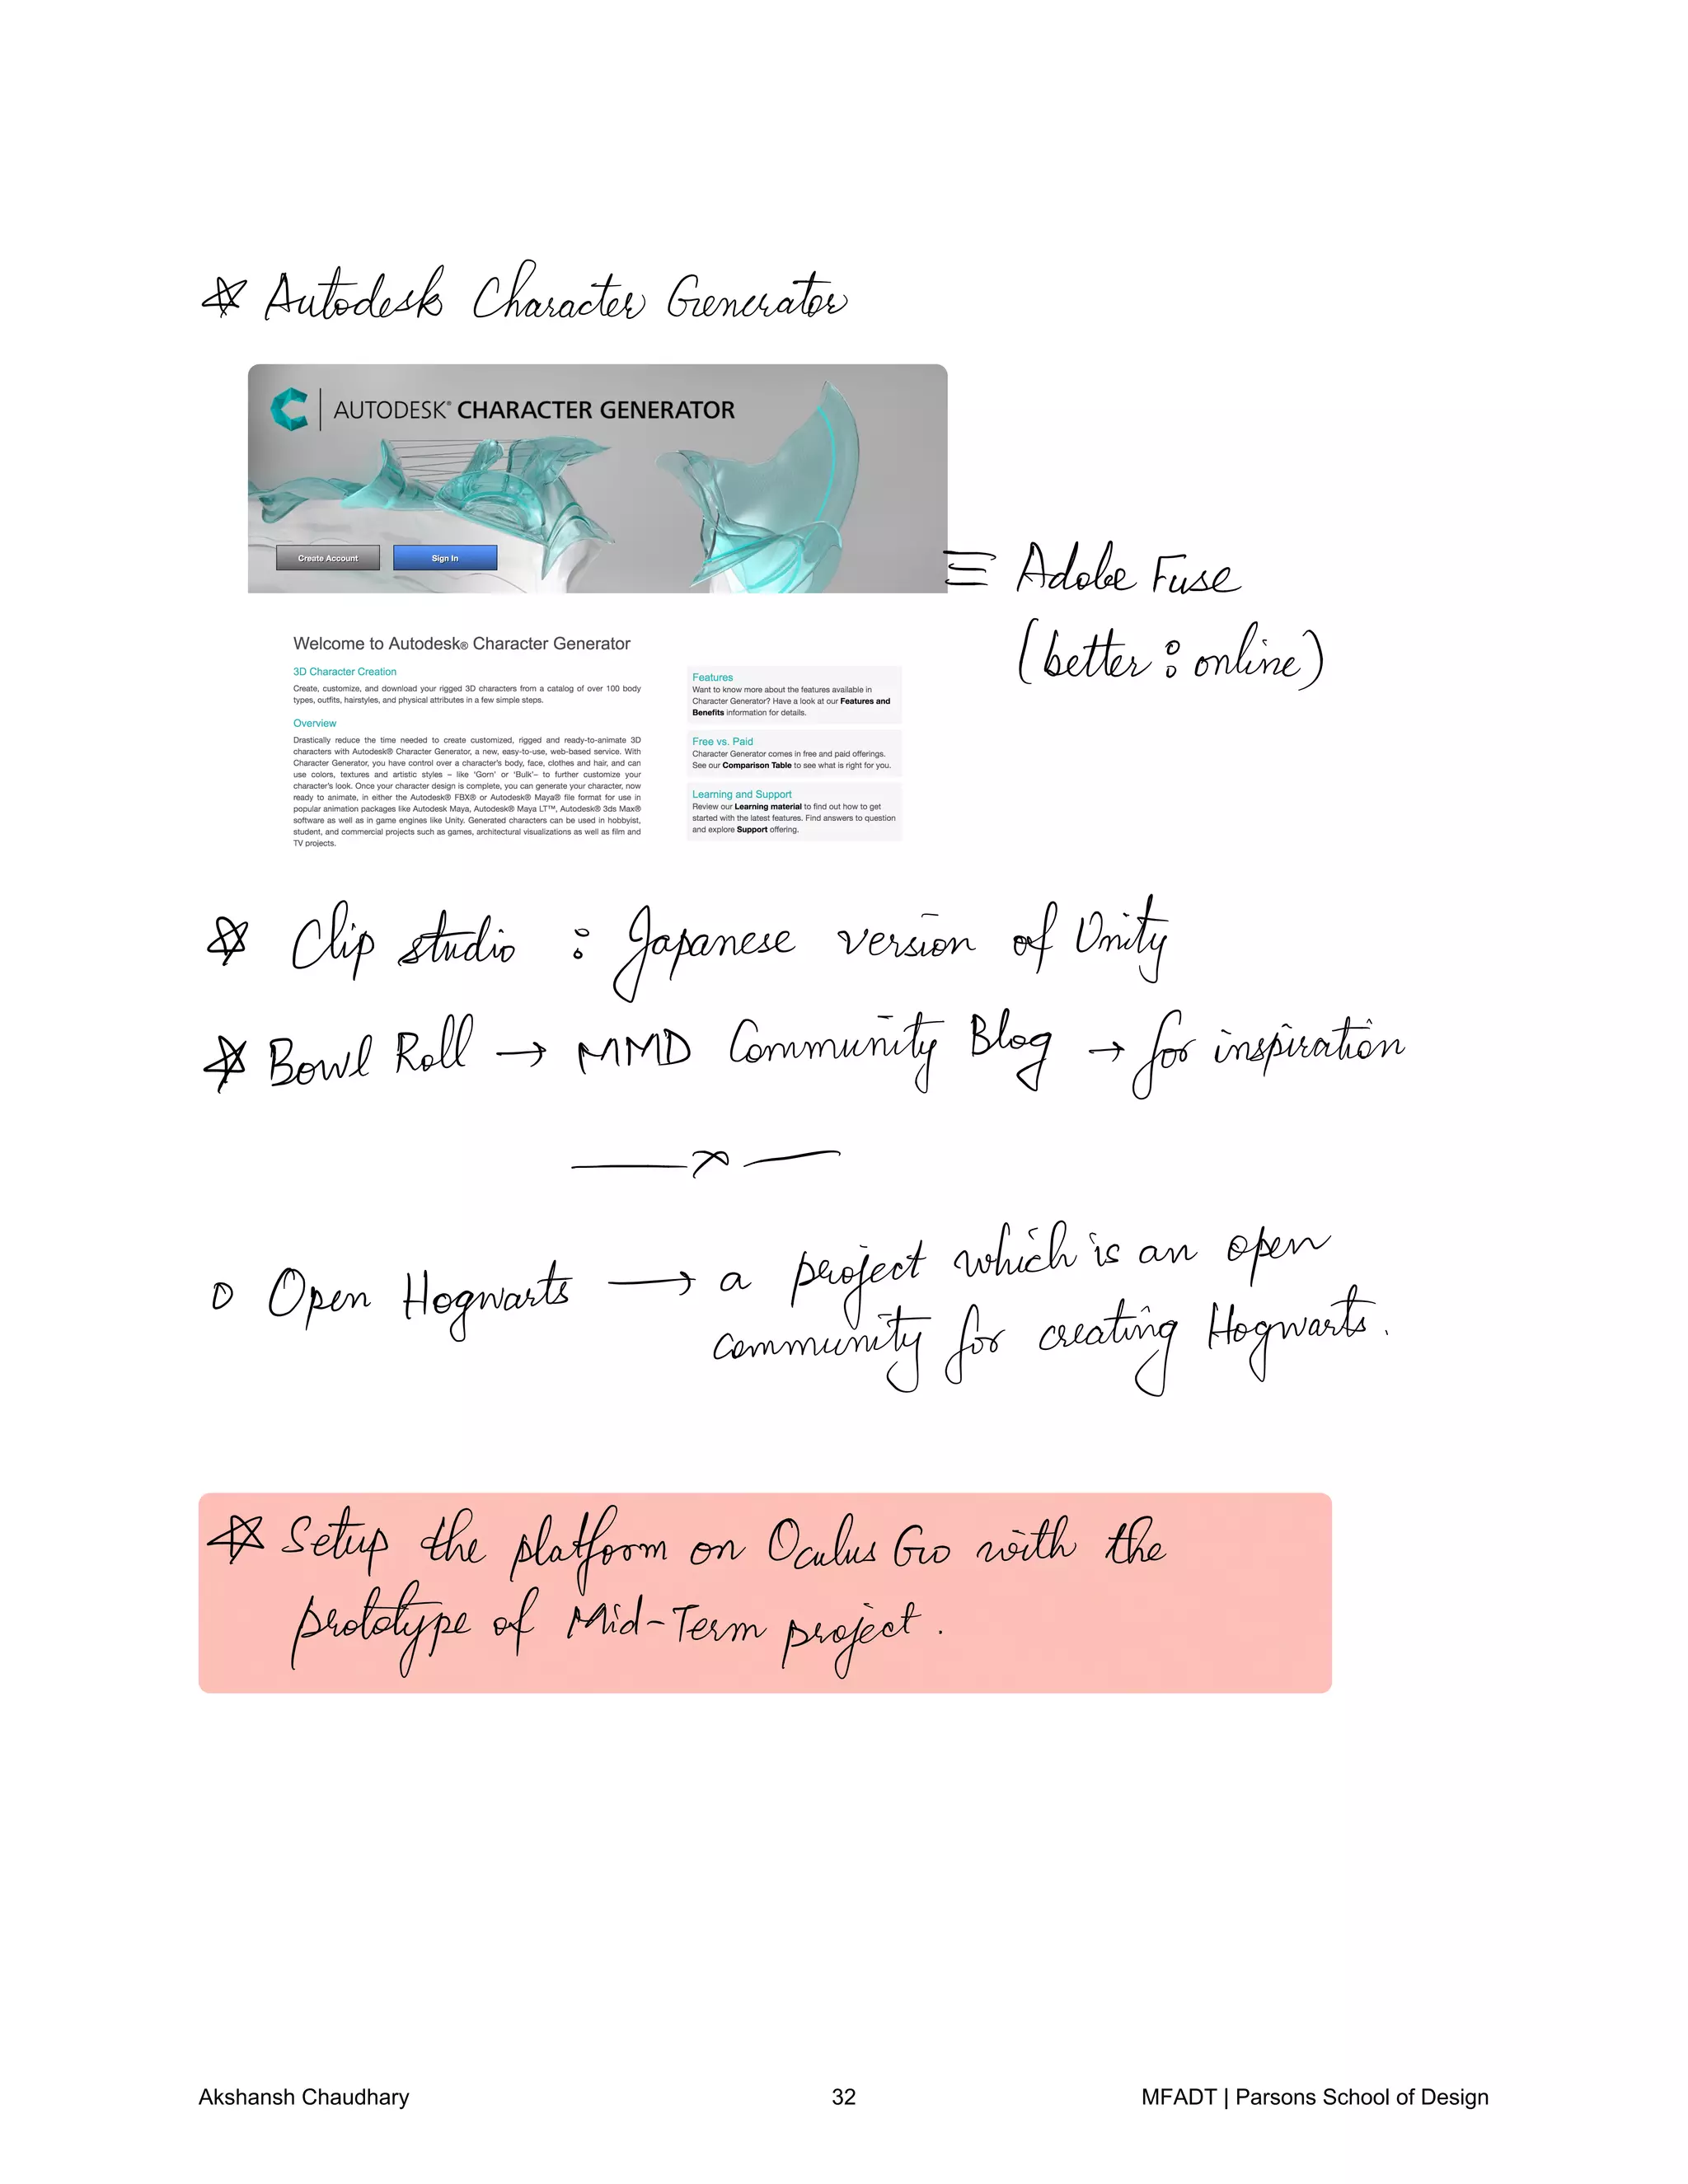 Autodesk Character Generator
AUTODESK® CHARACTER GENERATOR
Create Account Sign In
≡ Adobe Fuse
(better : online)
Welcome to Autodesk® Character Generator
3D Character Creation
Create, customize, and download your rigged 3D characters from a catalog of over 100 body
types, outfits, hairstyles, and physical attributes in a few simple steps.
Overview
Drastically reduce the time needed to create customized, rigged and ready-to-animate 3D
characters with Autodesk® Character Generator, a new, easy-to-use, web-based service. With
Character Generator, you have control over a character's body, face, clothes and hair, and can
use colors, textures and artistic styles – like 'Gorn' or 'Bulk'– to further customize your
character's look. Once your character design is complete, you can generate your character, now
ready to animate, in either the Autodesk® FBX® or Autodesk® Maya® file format for use in
popular animation packages like Autodesk Maya, Autodesk® Maya LT™, Autodesk® 3ds Max®
software as well as in game engines like Unity. Generated characters can be used in hobbyist,
student, and commercial projects such as games, architectural visualizations as well as film and
TV projects.
Features
Want to know more about the features available in
Character Generator? Have a look at our Features and
Benefits information for details.
Free vs. Paid
Character Generator comes in free and paid offerings.
See our Comparison Table to see what is right for you.
Learning and Support
Review our Learning material to find out how to get
started with the latest features. Find answers to question
and explore Support offering.
Clip studio : Japanese version of Unity
Bowl Roll → MMD Community Blog → for inspiration
Open Hogwarts → a project which is an open
community for creating Hogwarts.
Setup the platform on Oculus Go with the
prototype of Mid-Term project.
Akshansh Chaudhary 32 MFADT | Parsons School of Design